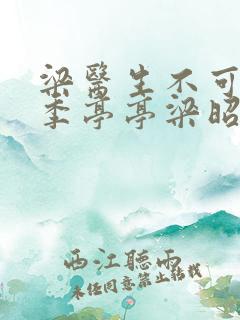 梁醫生不可
季亭亭梁昭
西江聽雨
未经同意禁止转载